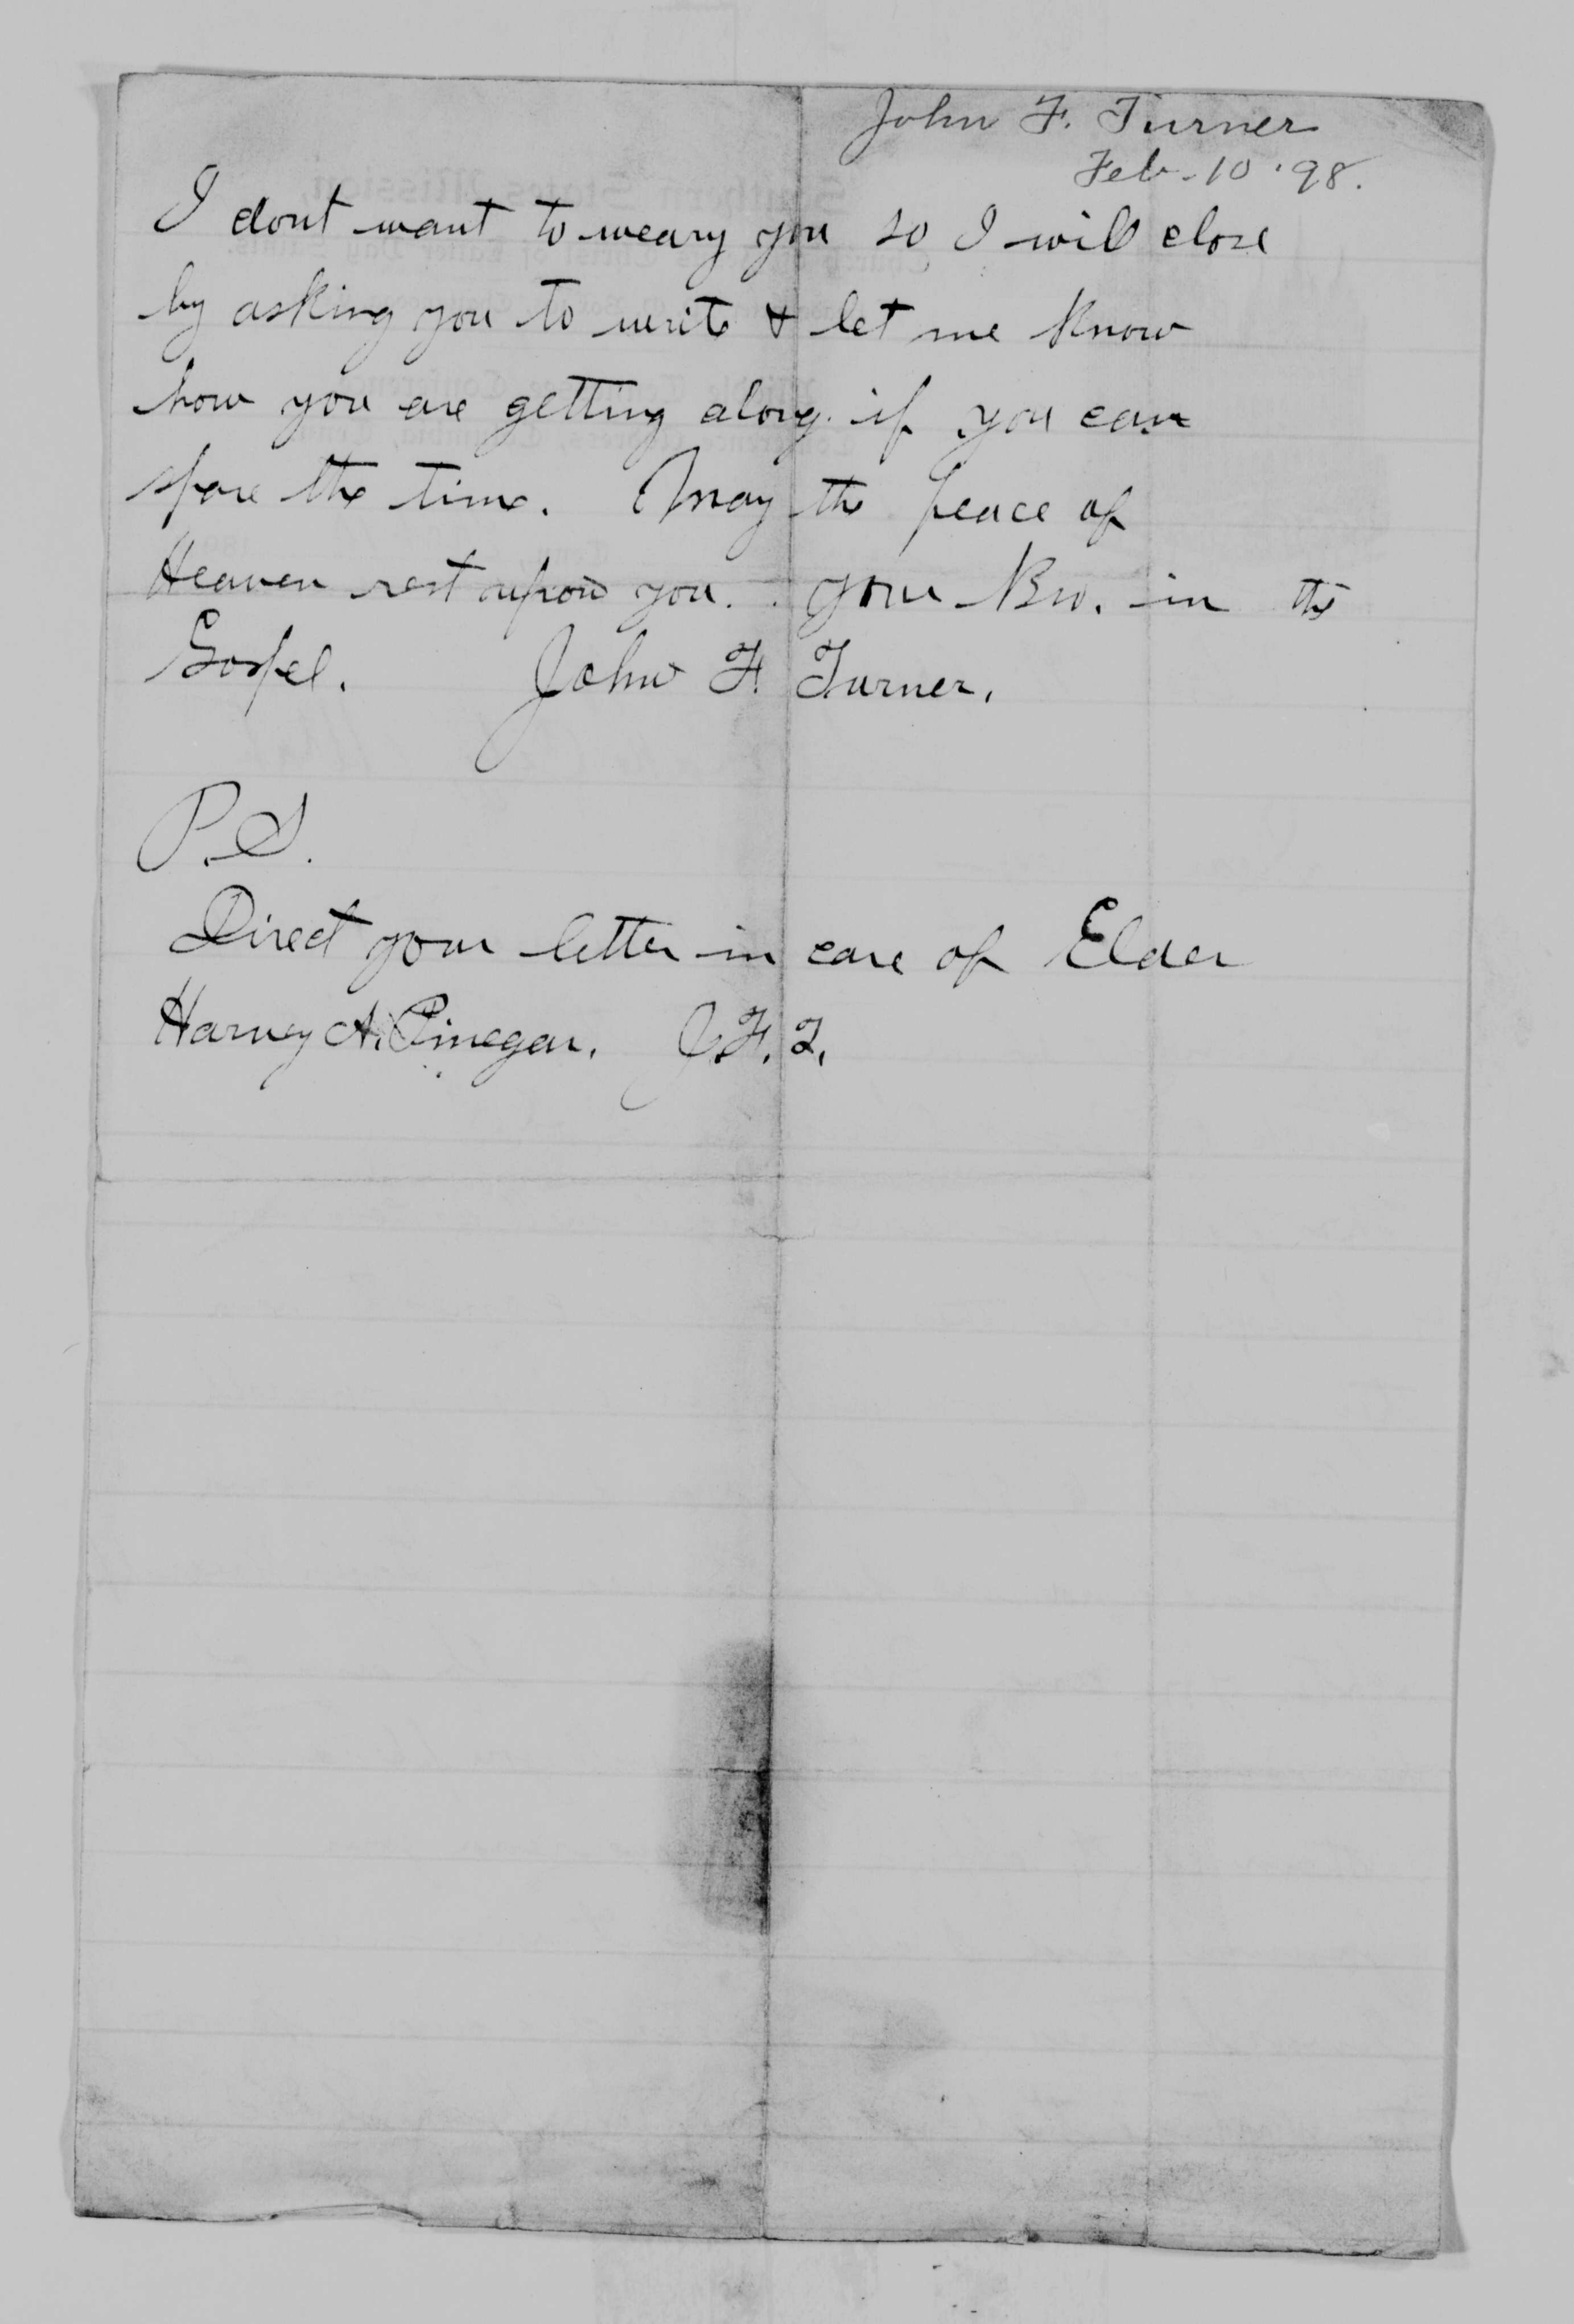 John F. Turner
Feb. 10 '98.
I dont want to weary you so I will close
by asking you to write & let me know
how you are getting along if you can
spare the time. May the peace of
Heaven rest upon you. your Bro. in the
Gospel. John F. Turner.
P.S.
Direct your letter in care of Elder
Harvey A. Pinegar. J.F.T.